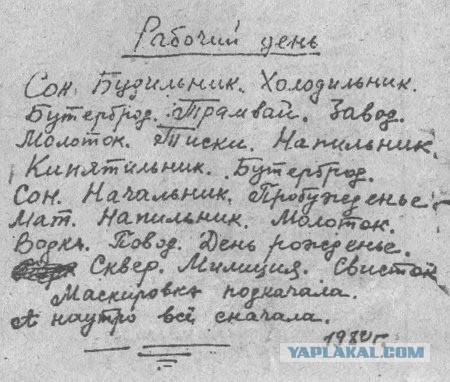 Рабочий день
Сон. Будильник. Холодильник.
Бутерброд. Трамвай. Завод.
Молоток. Тиски. Напильник.
Кипятильник. Бутерброд.
Сон. Начальник. Пробужденье.
Мат. Напильник. Молоток.
Водка. Повод. День рожденье.
Сквер. Милиция. Свисток
Маскировка подкачала.
А наутро всё сначала.
YAPLAKAL.COM